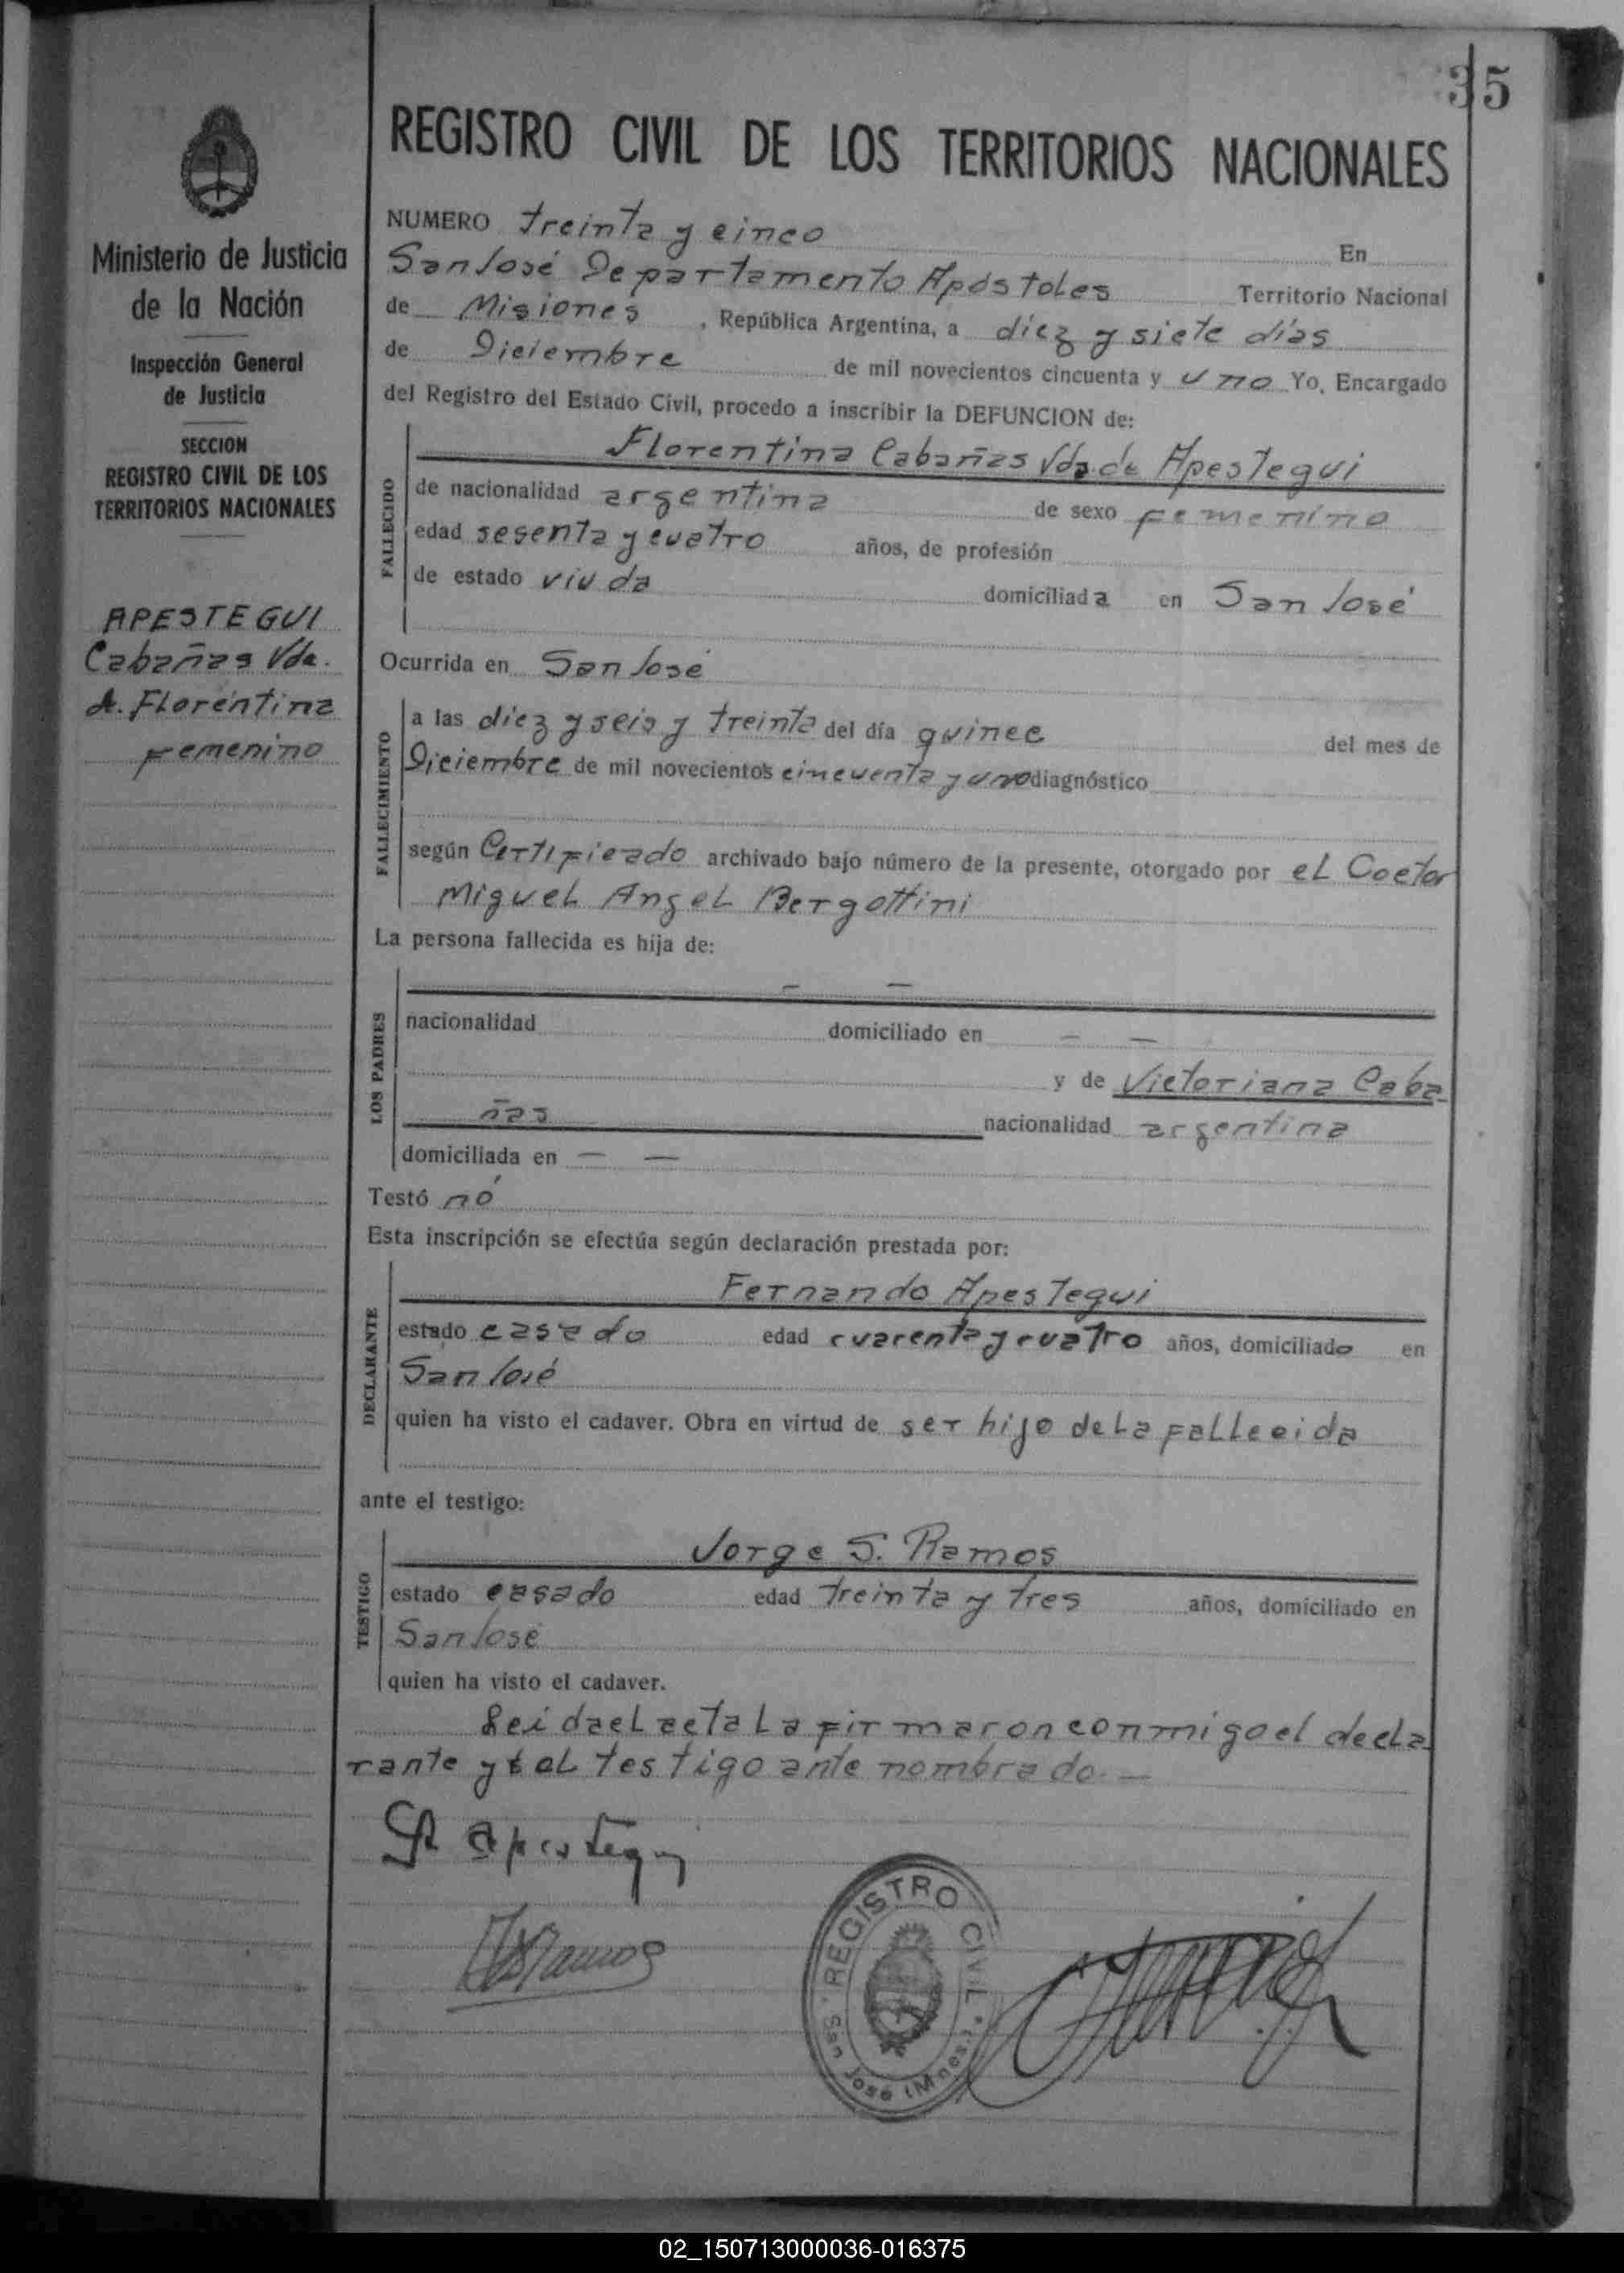 35
REGISTRO CIVIL DE LOS TERRITORIOS NACIONALES
Ministerio de Justicia
de la Nación
Inspección General
de Justicia
SECCION
REGISTRO CIVIL DE LOS
TERRITORIOS NACIONALES
APESTEGUI
Cabañas Vda.
A. Florentina
femenino
NUMERO treinta y cinco En
San José Departamento Apóstoles Territorio Nacional
de Misiones, República Argentina, a diez y siete días
de Diciembre de mil novecientos cincuenta y uno Yo, Encargado
del Registro del Estado Civil, procedo a inscribir la DEFUNCION de:
Florentina Cabañas Vda. de Apestegui
FALLECIDO
de nacionalidad argentina de sexo femenino
edad sesenta y cuatro años, de profesión
de estado viuda domiciliada en San José
Ocurrida en San José
FALLECIMIENTO
a las diez y seis y treinta del día quince del mes de
Diciembre de mil novecientos cincuenta y uno diagnóstico
según Certificado archivado bajo número de la presente, otorgado por el Doctor
Miguel Angel Bergottini
La persona fallecida es hija de:
LOS PADRES
— —
nacionalidad domiciliado en — —
y de Victoriana Caba
ñas nacionalidad argentina
domiciliada en — —
Testó nó
Esta inscripción se efectúa según declaración prestada por:
Fernando Apestegui
DECLARANTE
estado casado edad cuarenta y cuatro años, domiciliado en
San José
quien ha visto el cadaver. Obra en virtud de ser hijo de la fallecida
ante el testigo:
Jorge S. Ramos
TESTIGO
estado casado edad treinta y tres años, domiciliado en
San José
quien ha visto el cadaver.
Leida el acta la firmaron conmigo el decla
rante y el testigo ante nombrado. —
Apestegui
Ramos
REGISTRO CIVIL
San José (Mnes.)
02_150713000036-016375